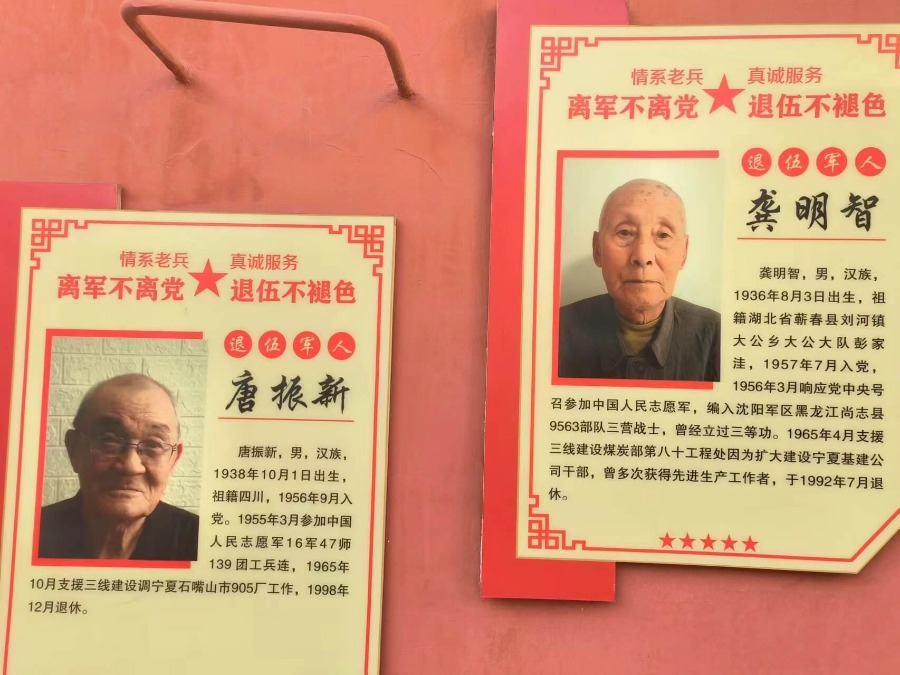 情系老兵 真诚服务
离军不离党 退伍不褪色
退伍军人
唐振新
唐振新，男，汉族，
1938年10月1日出生，
祖籍四川，1956年9月入
党。1955年3月参加中国
人民志愿军16军47师
139团工兵连，1965年
10月支援三线建设调宁夏石嘴山市905厂工作，1998年
12月退休。
情系老兵 真诚服务
离军不离党 退伍不褪色
退伍军人
龚明智
龚明智，男，汉族，
1936年8月3日出生，祖
籍湖北省蕲春县刘河镇
大公乡大公大队彭家
洼，1957年7月入党，
1956年3月响应党中央号
召参加中国人民志愿军，编入沈阳军区黑龙江尚志县
9563部队三营战士，曾经立过三等功。1965年4月支援
三线建设煤炭部第八十工程处因为扩大建设宁夏基建公
司干部，曾多次获得先进生产工作者，于1992年7月退
休。